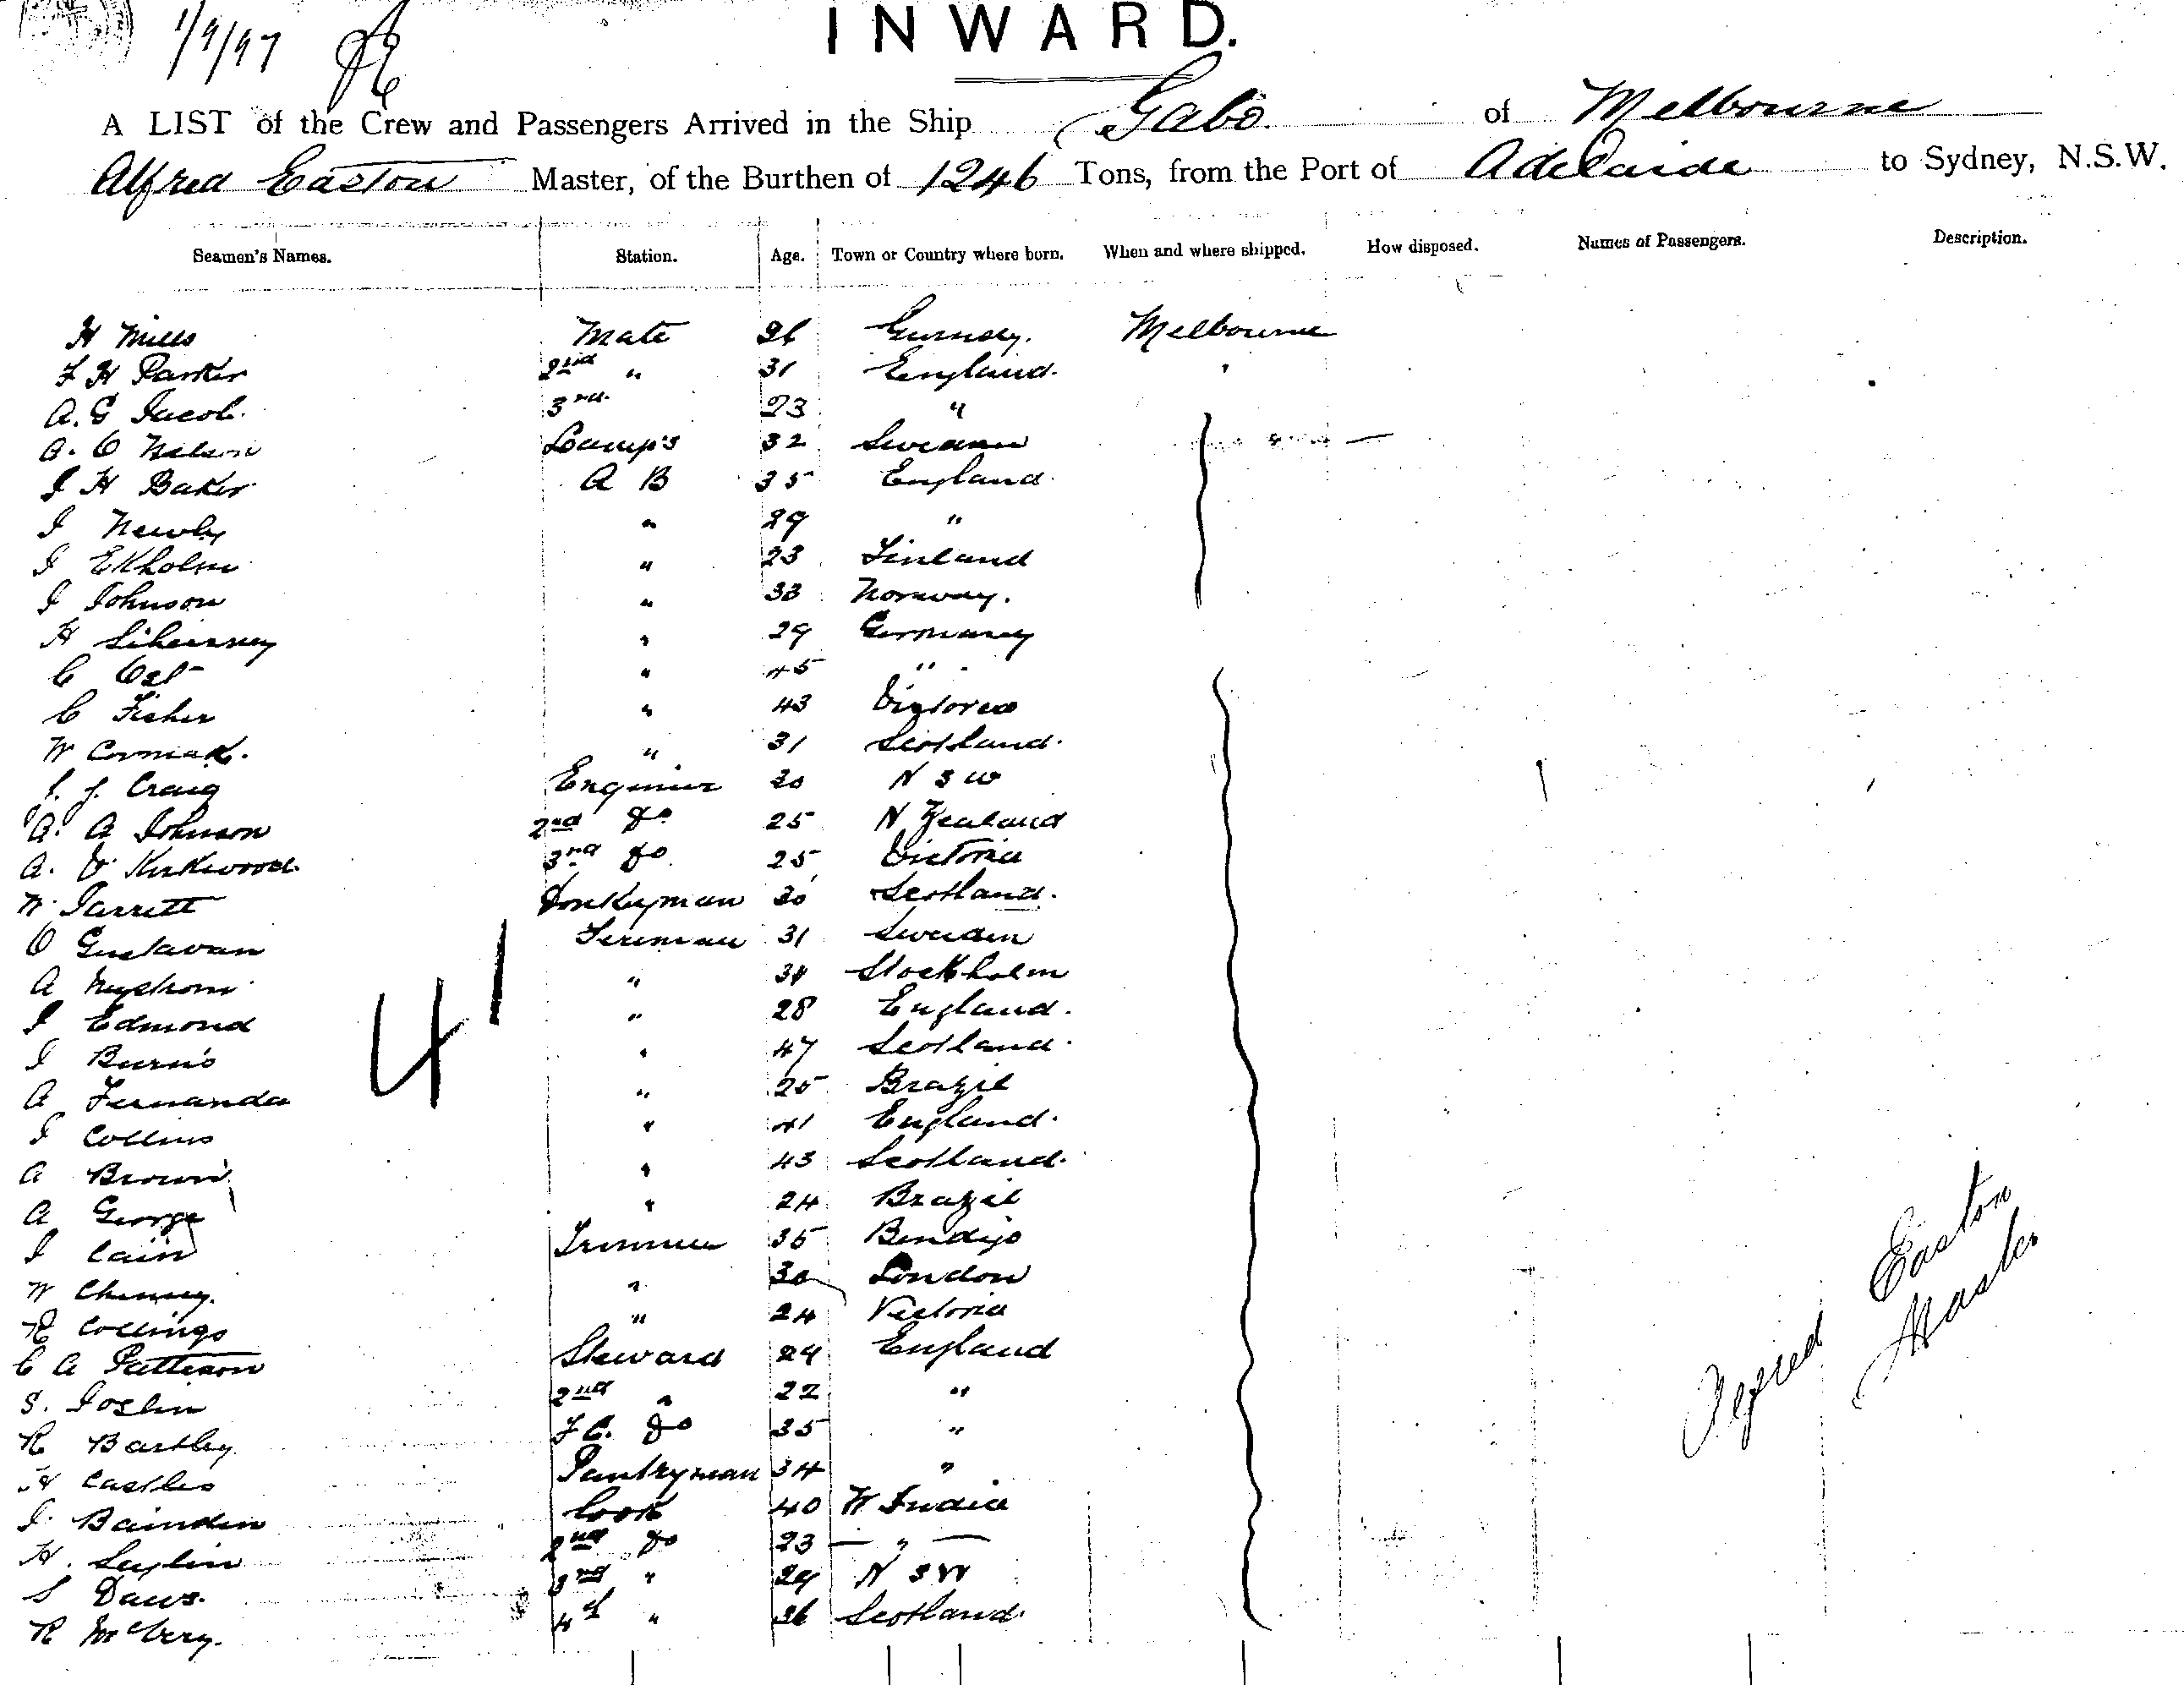 1/9/97
INWARD.
A LIST of the Crew and Passengers Arrived in the Ship Gabo of Melbourne
Alfred Easton Master, of the Burthen of 1246 Tons, from the Port of Adelaide to Sydney, N.S.W.
Seamen's Names. Station. Age. Town or Country where born. When and where shipped. How disposed. Names of Passengers. Description.
H Mills Mate 26 Gurnsey. Melbourne
F H Parker 2nd " 31 England. "
A. G Jacob. 3rd. 23 "
A. O Nelson Lamps 32 Sweden
J H Baker A B 35 England.
J Newby " 29 "
J Ekholm " 23 Finland
J Johnson " 33 Norway.
H " 29 Germany
C " 45 "
C Fisher " 43 Victoria
W Cormack. " 31 Scotland.
J. Craig Engineer 30 N S W
A. A Johnson 2nd do 25 N Zealand
A. V Kirkwood. 3rd do. 25 Victoria
W Jarrett Donkeyman 30 Scotland.
O Gustavan Fireman 31 Sweden
A Nystrom " 34 Stockholm
J Edmond " 28 England.
J Burns " 47 Scotland.
A Fernanda " 25 Brazil
J Collins " 41 England.
A Brown " 43 Scotland.
A George " 24 Brazil
J Cain Trimmer 35 Bendigo
W Chenney. " 30 London
R Collings " 24 Victoria
C A Pattison Steward 29 England
S. Joslin 2nd " 22 "
R Bartley. F C. do 35 "
H Castles Pantryman 34 "
J. Cook 40 W India
H. 2nd do 23 — " —
S Daws. 3rd " 29 N S W
R 4th " 36 Scotland.
41
Alfred Easton
Master